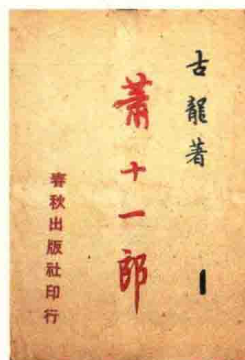 古龍著
1
蕭十一郎
春秋出版社印行